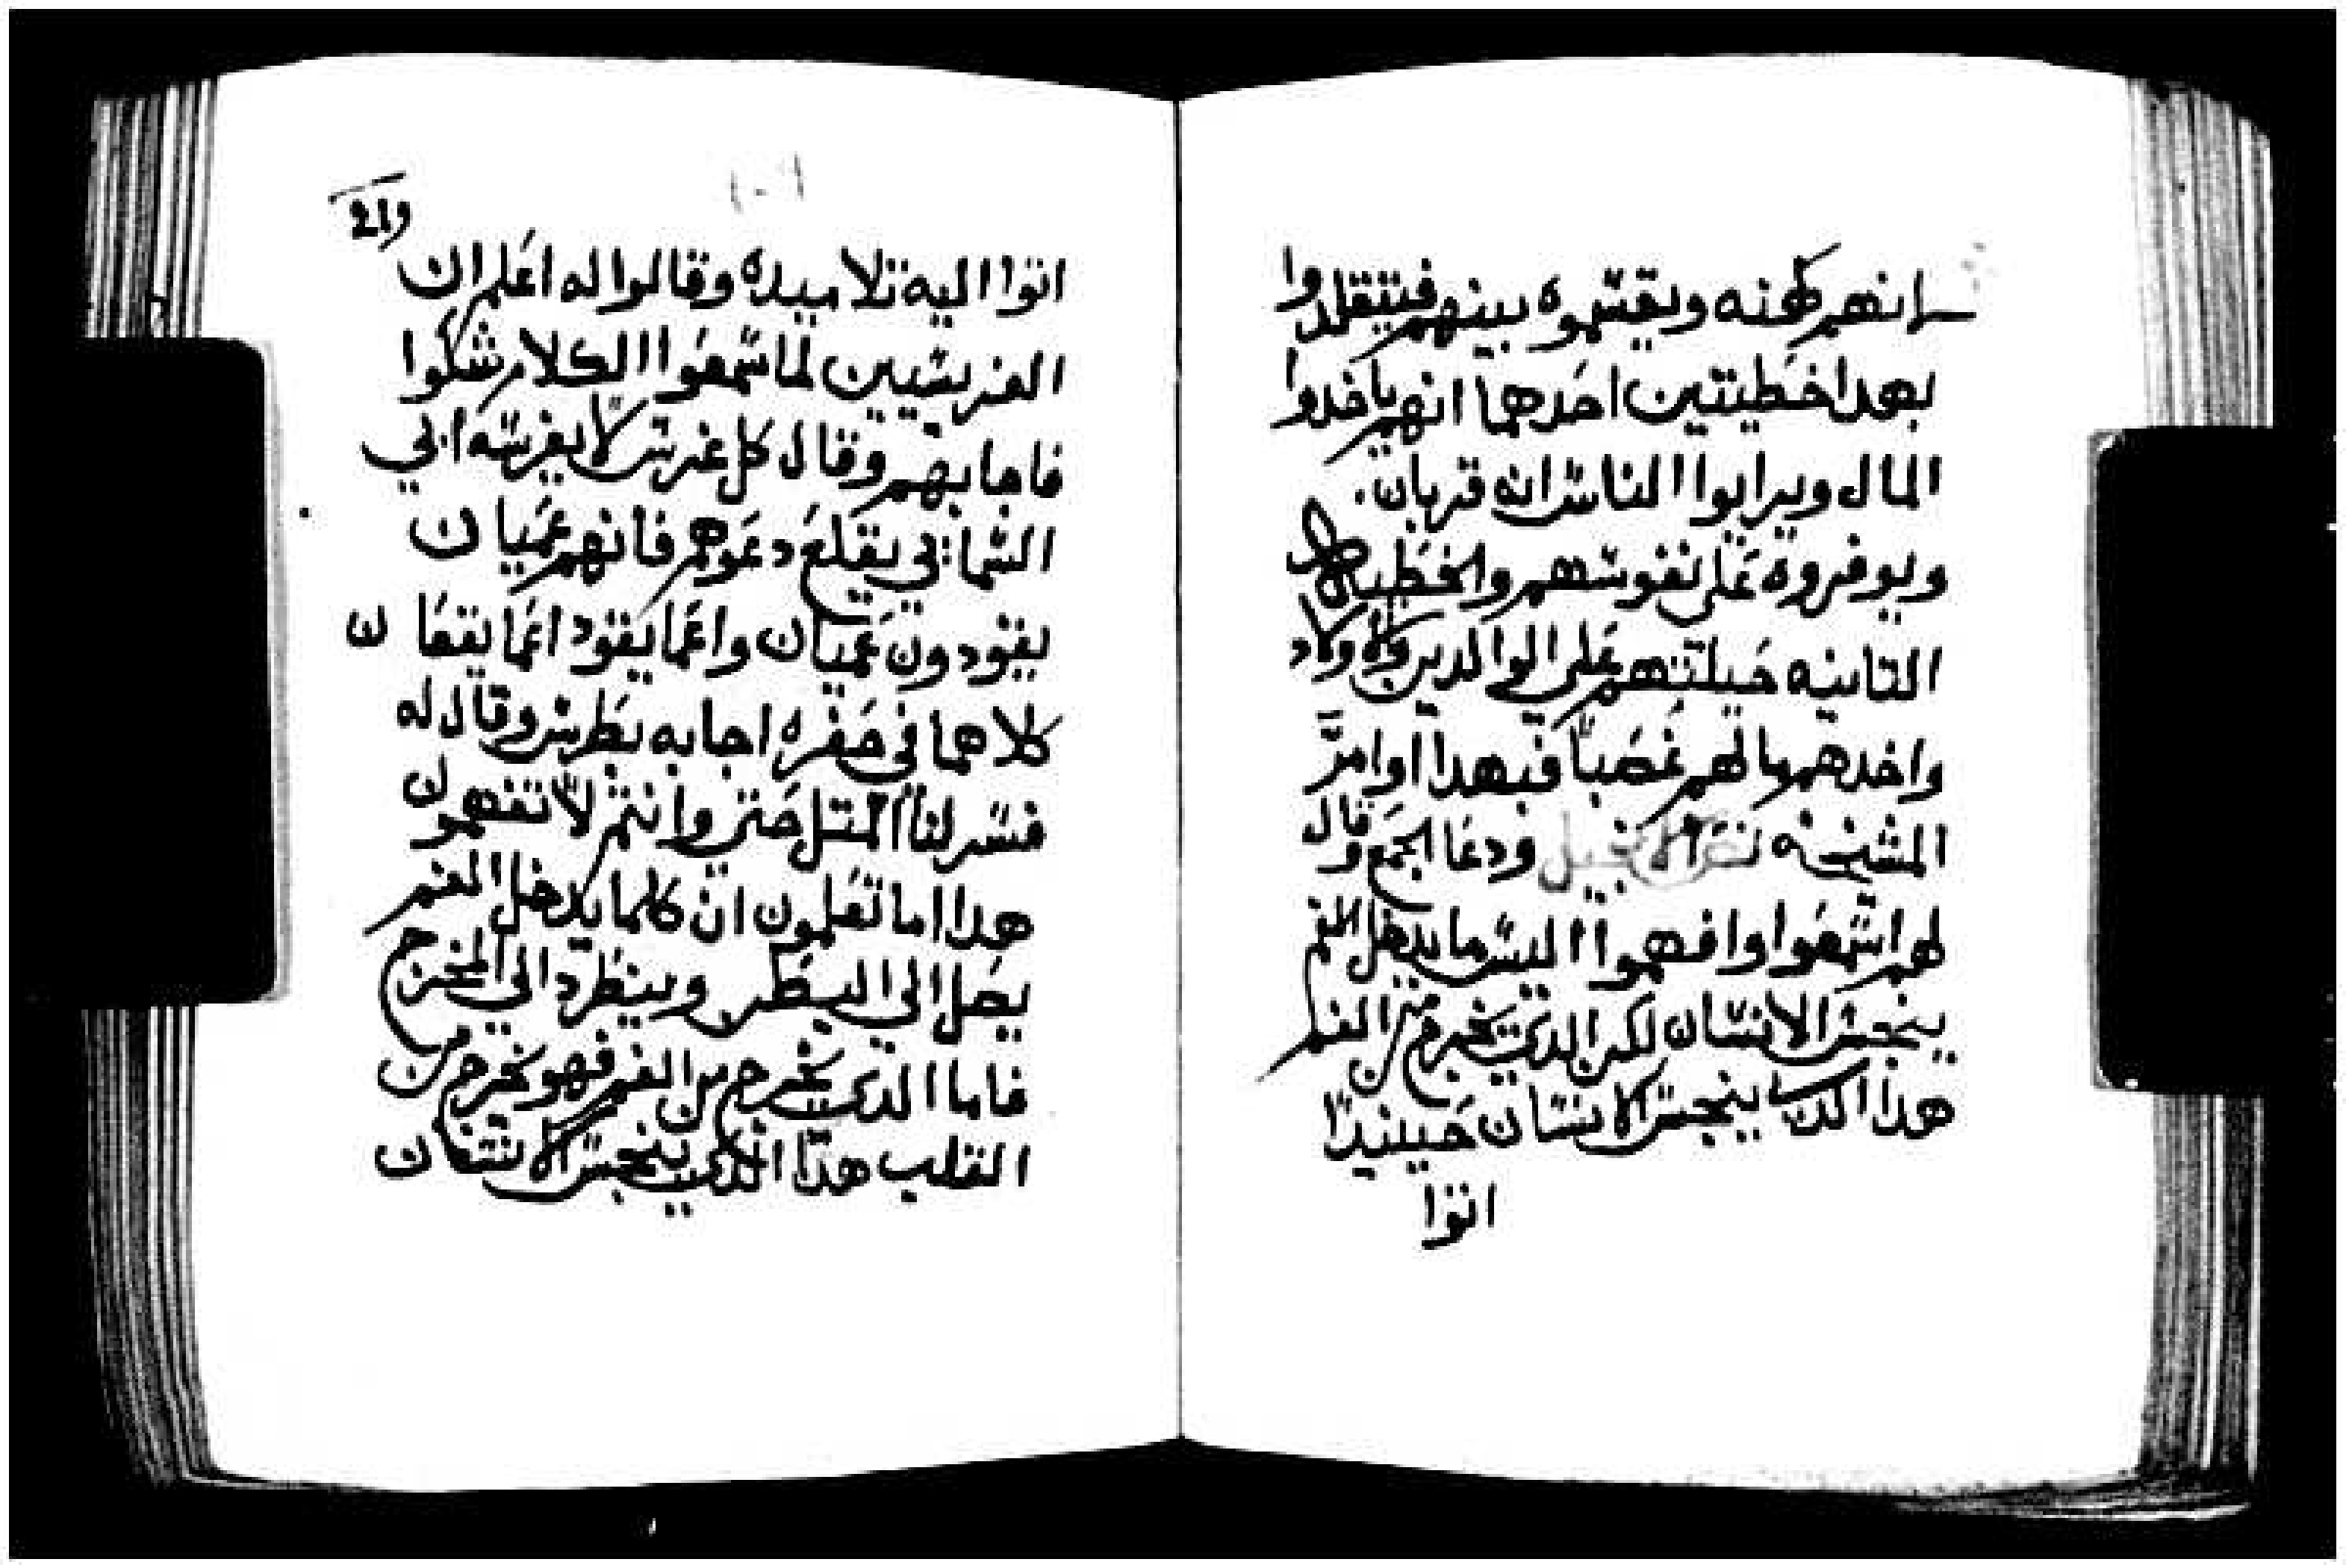 انهم كهنه ويقسموه بينهم فيتقلدوا
بهدا خطيتين احدهما انهم ياخدوا
المال ويرايوا الناس انه قربان.
ويوفروه على نفوسهم والخطيه
التانيه حيلتهم على الوالدين والاولاد
واخدهم مالهم غصباً فبهدا اوامر
المشيخه نص الانجيل ودعا الجمع وقال
لهم اسمعوا وافهموا اليس ما يدخل الفم
ينجس الانسان لكن الدى يخرج من الفم
هدا الدى ينجس الانسان حينيدا
اتوا
١٠٦
اتوا اليه تلاميده وقالوا له اعلم ان
الفريسيين لما سمعوا الكلام شكوا
فاجابهم وقال كل غرس لا يغرسه ابي
السمايي يقلع دعوهم فانهم عميان
يقودون عميان واعما يقود اعما يقعان
كلاهما في حفره اجابه بطرس وقال له
فسر لنا المتل حتى وانتم لا تفهمون
هدا اما تعلمون ان كلما يدخل الفم
يصل الى البطن وينطرد الى المخرج
فاما الدى يخرج من الفم فهو يخرج من
القلب هدا الدى ينجس الانسان